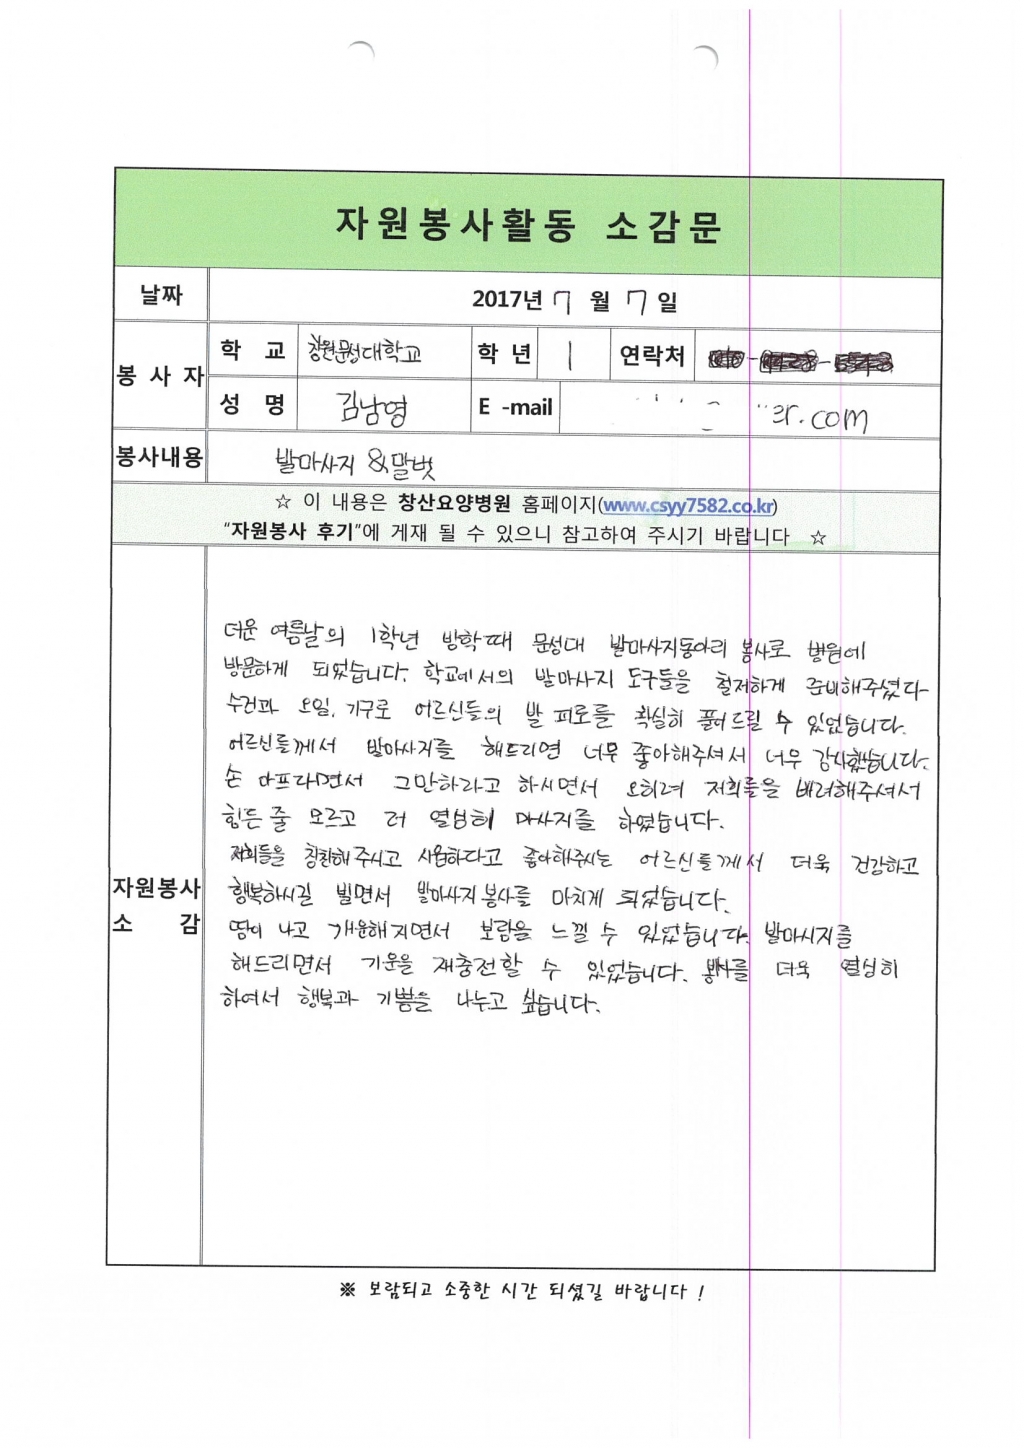 자원봉사활동 소감문
날짜 2017년 7 월 7 일
봉 사 자 학 교 창원문성대학교 학 년 1 연락처
성 명 김남영 E -mail er.com
봉사내용 발마사지 & 말벗
☆ 이 내용은 창산요양병원 홈페이지(www.csyy7582.co.kr)
"자원봉사 후기"에 게재 될 수 있으니 참고하여 주시기 바랍니다 ☆
자원봉사
소 감
더운 여름날의 1학년 방학때 문성대 발마사지동아리 봉사로 병원에
방문하게 되었습니다. 학교에서의 발마사지 도구들을 철저하게 준비해주셨다
수건과 오일, 기구로 어르신들의 발 피로를 확실히 풀어드릴 수 있었습니다.
어르신들께서 발마사지를 해드리면 너무 좋아해주셔서 너무 감사했습니다.
손 아프라면서 그만하라고 하시면서 오히려 저희들을 배려해주셔서
힘든 줄 모르고 더 열심히 마사지를 하였습니다.
저희들을 칭찬해 주시고 시원하다고 좋아해주시는 어르신들께서 더욱 건강하고
행복하시길 빌면서 발마사지 봉사를 마치게 되었습니다.
땀이 나고 개운해지면서 보람을 느낄 수 있었습니다. 발마시지를
해드리면서 기운을 재충전할 수 있었습니다. 봉사를 더욱 열심히
하여서 행복과 기쁨을 나누고 싶습니다.
※ 보람되고 소중한 시간 되셨길 바랍니다 !